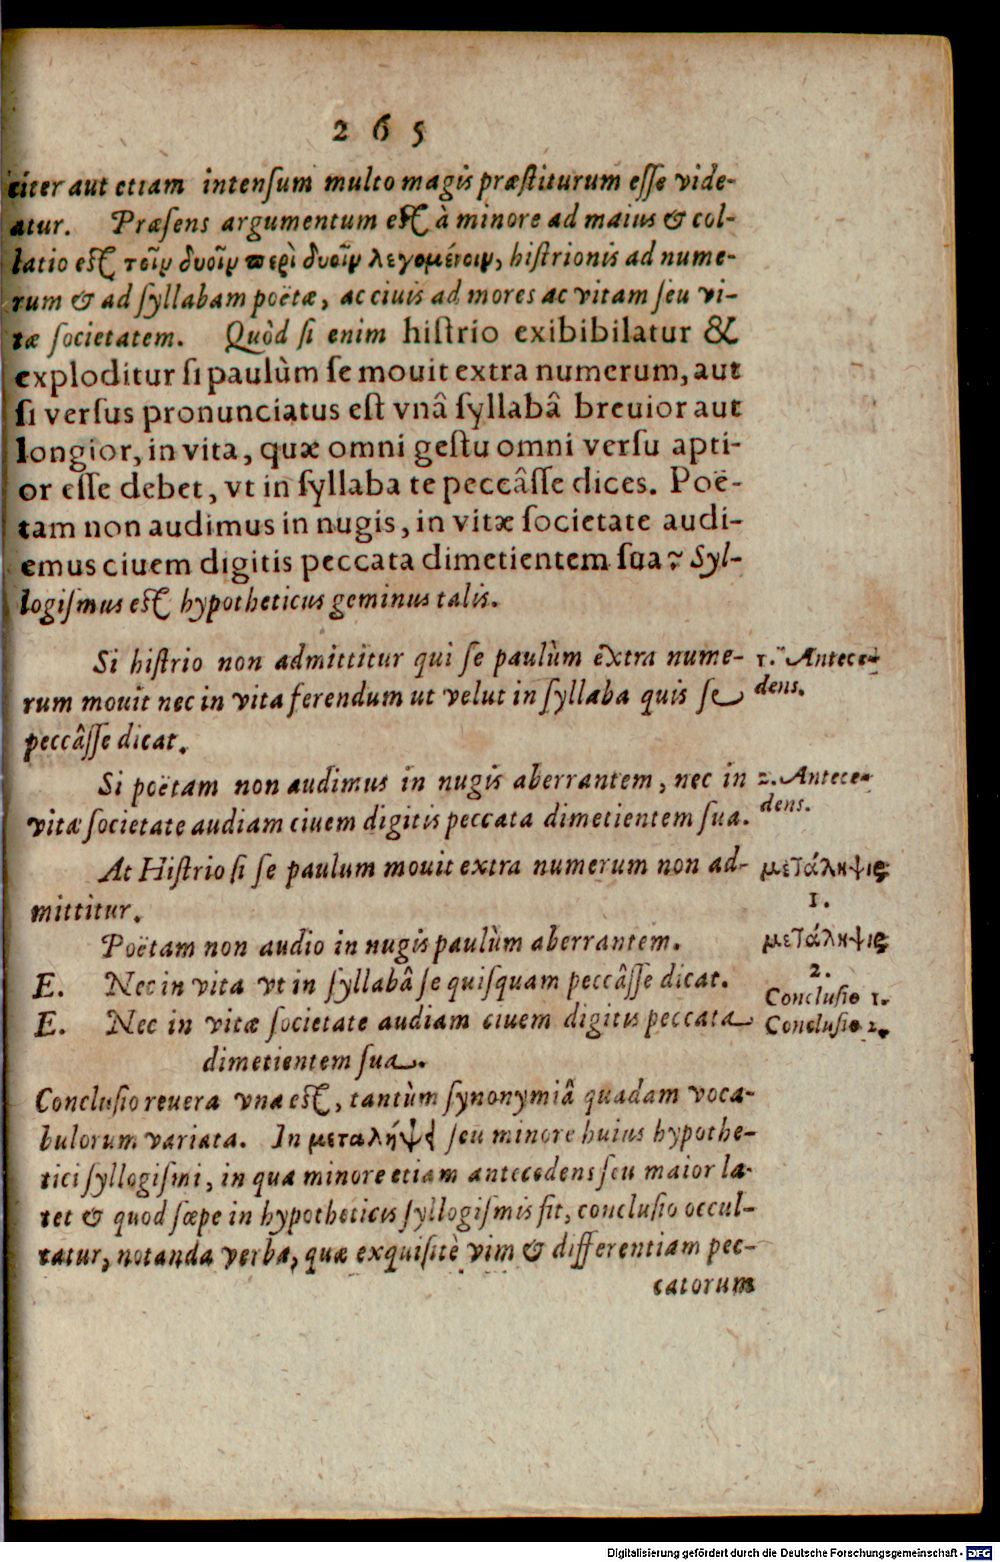 265
citer aut etiam intensum multo magis præstiturum esse vide-
atur. Præsens argumentum est à minore ad maius & col-
latio est τοῖν δυοῖν περὶ δυοῖν λεγομένοιν, histrionis ad nume-
rum & ad syllabam poëtæ, ac ciuis ad mores ac vitam seu vi-
tæ societatem. Quòd si enim histrio exibibilatur &
exploditur si paulùm se mouit extra numerum, aut
si versus pronunciatus est vnâ syllabâ breuior aut
longior, in vita, quæ omni gestu omni versu apti-
or esse debet, vt in syllaba te peccâsse dices. Poë-
tam non audimus in nugis, in vitæ societate audi-
emus ciuem digitis peccata dimetientem sua? Syl-
logismus est hypotheticus geminus talis.
Si histrio non admittitur qui se paulùm extra nume-
1. Antece-
rum mouit nec in vita ferendum ut velut in syllaba quis se
dens.
peccâsse dicat.
Si poëtam non audimus in nugis aberrantem, nec in
2. Antece-
vitæ societate audiam ciuem digitis peccata dimetientem sua.
dens.
At Histrio si se paulum mouit extra numerum non ad-
μετάληψις
mittitur.
1.
Poëtam non audio in nugis paulùm aberrantem.
μετάληψις
2.
E. Nec in vita vt in syllabâ se quisquam peccâsse dicat.
Conclusio 1.
E. Nec in vitæ societate audiam ciuem digitis peccata
Conclusio 2.
dimetientem sua.
Conclusio reuera vna est, tantùm synonymiâ quadam voca-
bulorum variata. In μεταλήψει seu minore huius hypothe-
tici syllogismi, in qua minore etiam antecedens seu maior la-
tet & quod sæpe in hypotheticis syllogismis fit, conclusio occul-
tatur, notanda verba, quæ exquisitè vim & differentiam pec-
catorum
Digitalisierung gefördert durch die Deutsche Forschungsgemeinschaft - DFG